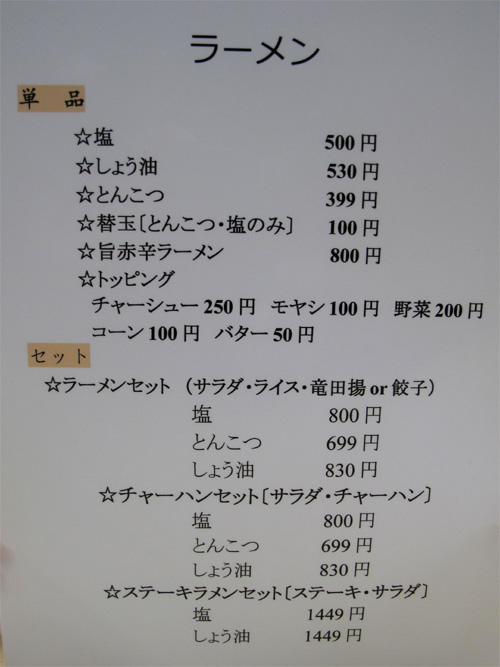 ラーメン
単 品
☆塩 500円
☆しょう油 530円
☆とんこつ 399円
☆替玉〔とんこつ・塩のみ〕 100円
☆旨赤辛ラーメン 800円
☆トッピング
チャーシュー250円 モヤシ100円 野菜200円
コーン100円 バター50円
セット
☆ラーメンセット (サラダ・ライス・竜田揚or餃子)
塩 800円
とんこつ 699円
しょう油 830円
☆チャーハンセット〔サラダ・チャーハン〕
塩 800円
とんこつ 699円
しょう油 830円
☆ステーキラメンセット〔ステーキ・サラダ〕
塩 1449円
しょう油 1449円